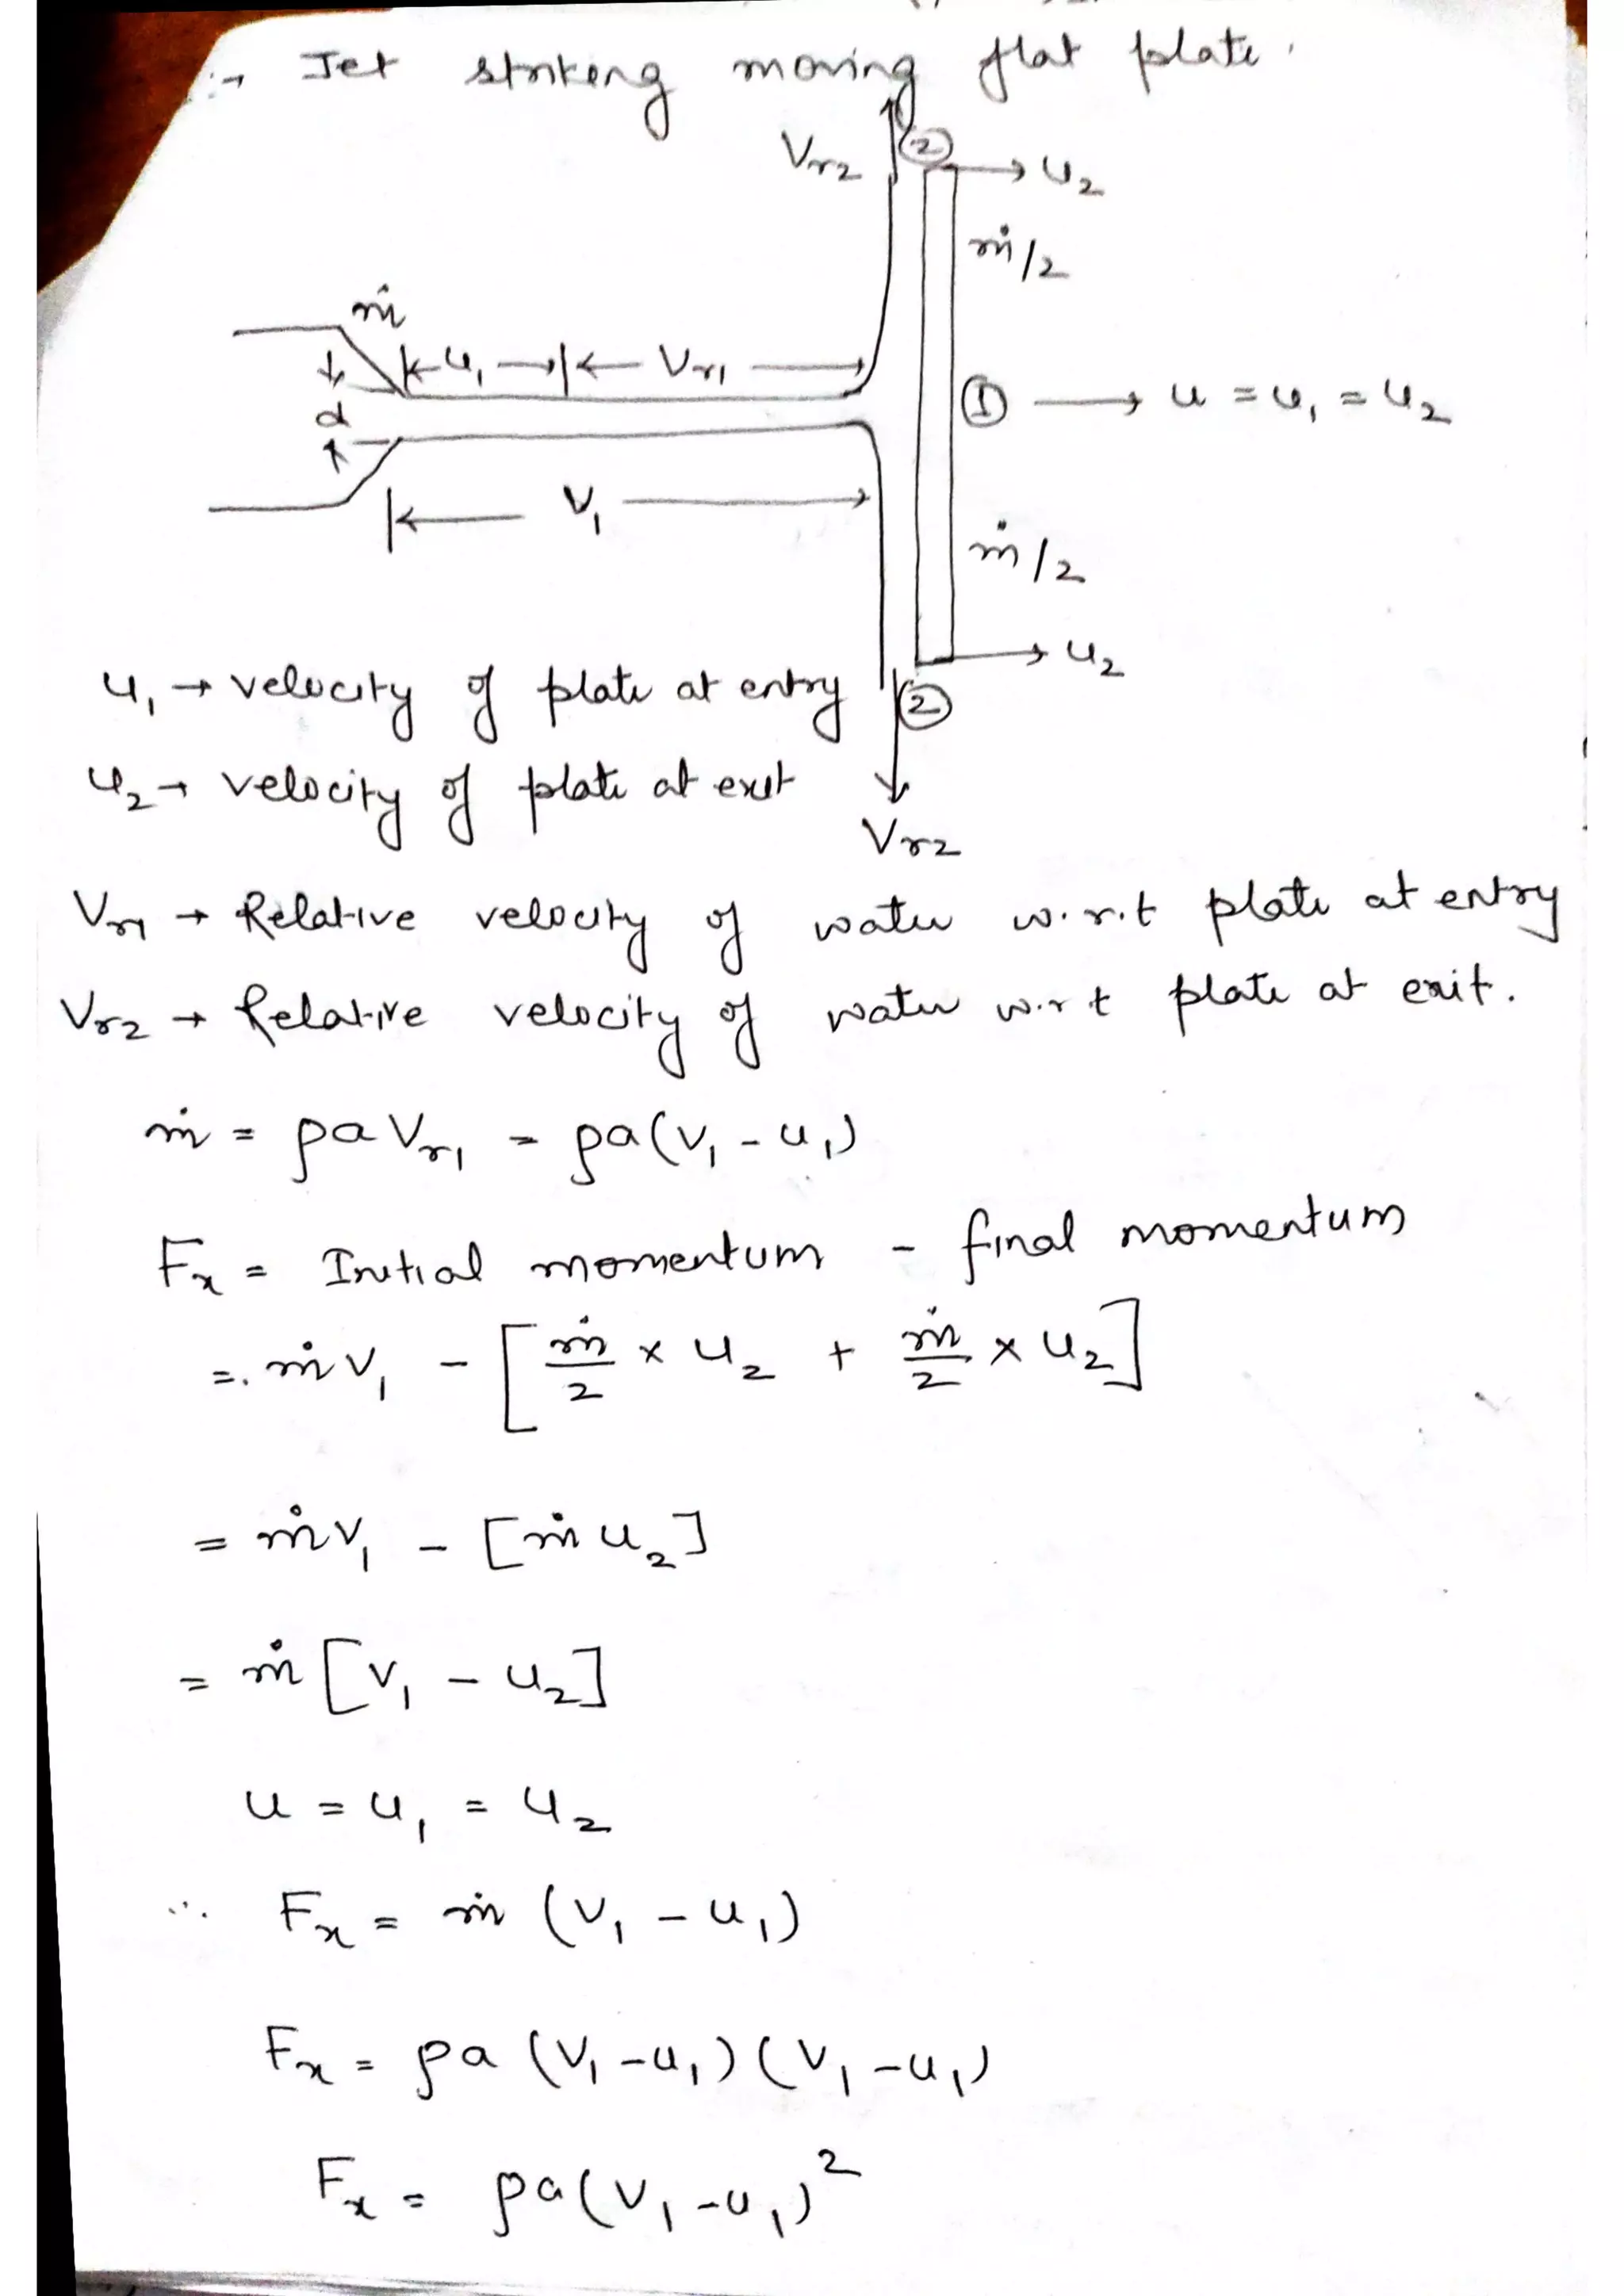 → Jet striking moving flat plate.
Vr2 ② → u2
ṁ/2
ṁ
u1 Vr1
d
① → u = u1 = u2
V1
ṁ/2
→ u2
u1 → velocity of plate at entry ②
u2 → velocity of plate at exit
Vr2
Vr1 → Relative velocity of water w.r.t plate at entry
Vr2 → Relative velocity of water w.r.t plate at exit.
ṁ = ρa Vr1 = ρa(V1 - u1)
Fx = Initial momentum - final momentum
= ṁ V1 - [ṁ/2 × u2 + ṁ/2 × u2]
= ṁV1 - [ṁ u2]
= ṁ [V1 - u2]
u = u1 = u2
∴ Fx = ṁ (V1 - u1)
Fx = ρa (V1 - u1) (V1 - u1)
Fx = ρa(V1 - u1)²